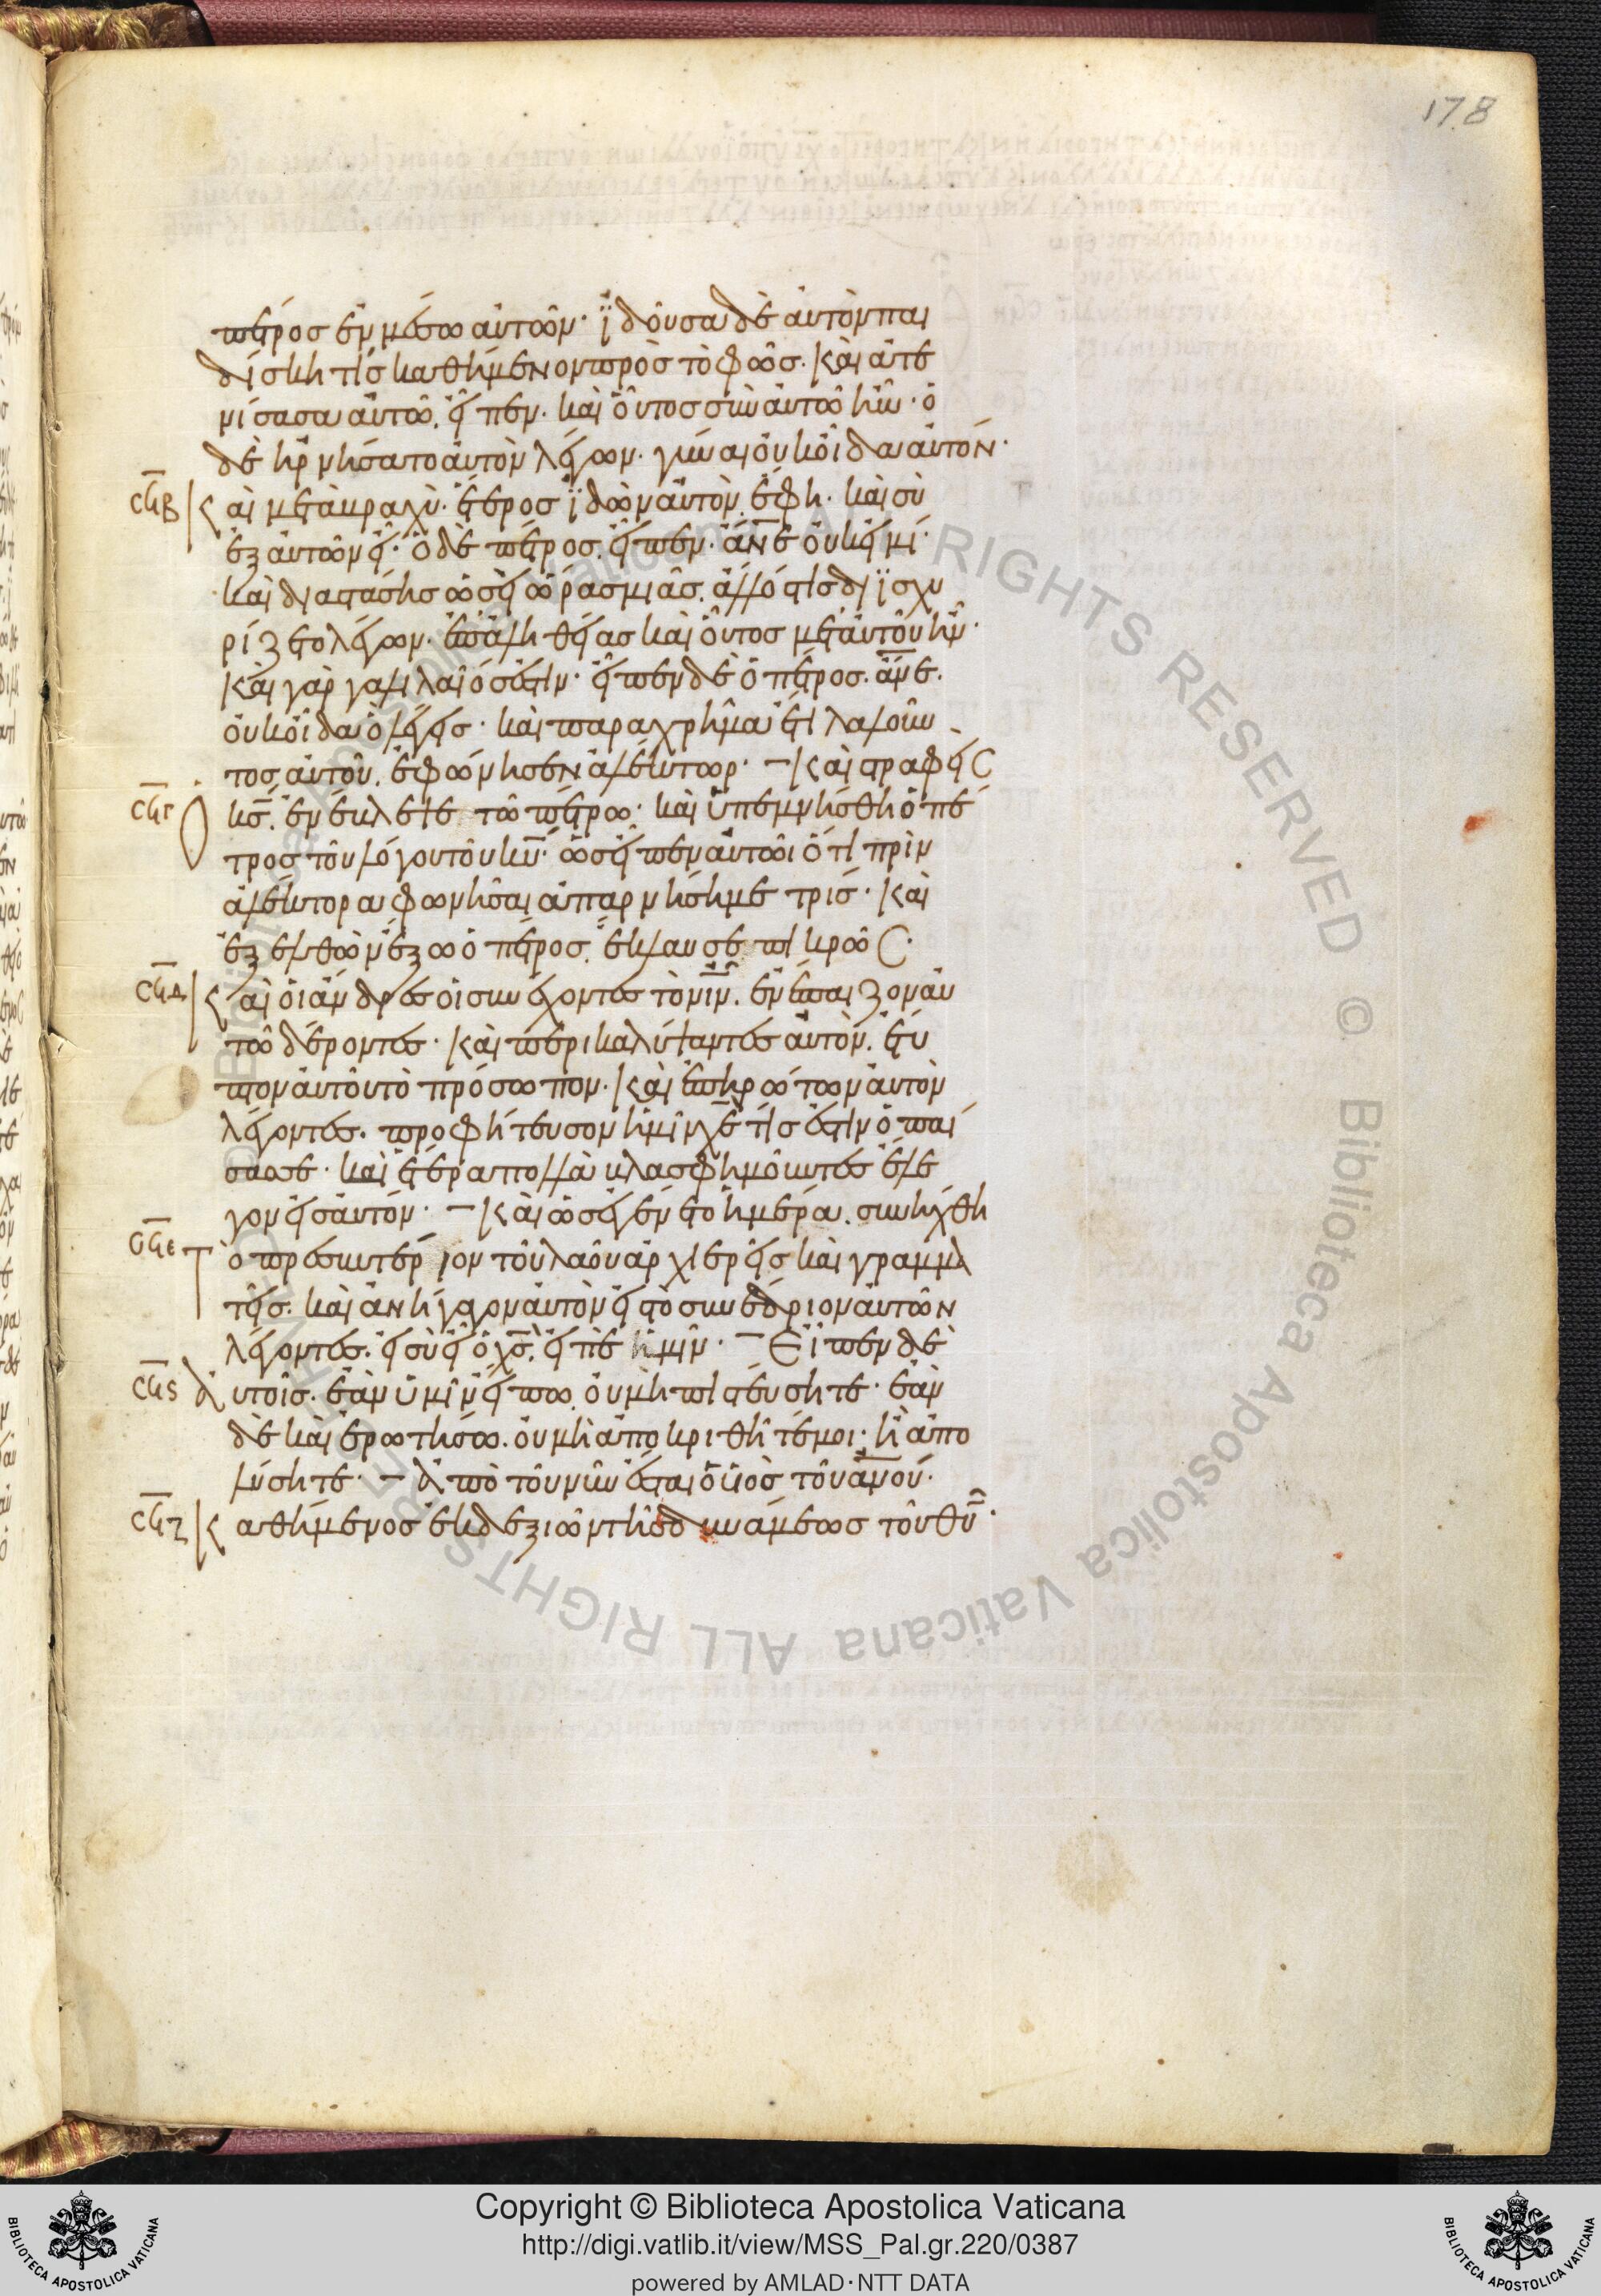 178
πέτρος ἐν μέσω αὐτῶν· ἰδοῦσα δὲ αὐτὸν παι
δίσκη τίς καθήμενον πρὸς τὸ φῶς. καὶ ἀτε
νίσασα αὐτῶ. εἶπεν. καὶ οὗτος σὺν αὐτῶ ἦν· ὁ
δὲ ἠρνήσατο αὐτὸν λέγων. γύναι οὐκ οἶδα αὐτόν·
σϟβ καὶ μετὰ βραχὺ. ἕτερος ἰδὼν αὐτὸν. ἔφη. καὶ σὺ
ἐξ αὐτῶν εἶ· ὁ δὲ πέτρος. εἶπεν. ἄνε οὐκ εἰμί·
καὶ διαστάσης ὡσεὶ ὥρας μιᾶς. ἄλλός τις διϊσχυ
ρίζετο λέγων. ἐπ' ἀληθείας καὶ οὗτος μετ' αὐτοῦ ἦν·
καὶ γὰρ γαλιλαῖός ἐστιν· εἶπεν δὲ ὁ πέτρος. ἄνε.
οὐκ οἶδα ὃ λέγεις· καὶ παραχρῆμα ἔτι λαλοῦν
τος αὐτοῦ. ἐφώνησεν ἀλέκτωρ· – καὶ στραφεὶς
σϟγ ὁ κς. ἐνέβλεψε τῶ πέτρω· καὶ ὑπεμνήσθη ὁ πέ
τρος τοῦ λόγου τοῦ κυ. ὡς εἶπεν αὐτῶι ὅτι πρὶν
ἀλέκτορα φωνῆσαι ἀπαρνήσημε τρίς· καὶ
ἐξελθὼν ἔξω ὁ πέτρος. ἔκλαυσε πικρῶς·
σϟδ καὶ οἱ ἄνδρες οἱ συνέχοντες τὸν ιν. ἐνέπαιζον αὐ
τῶ δέροντες· καὶ περικαλύψαντες αὐτὸν. ἔτυ
πτον αὐτοῦ τὸ πρόσωπον. καὶ ἐπηρώτων αὐτὸν
λέγοντες. προφήτευσον ἡμῖν χε τίς ἐστιν ὁ παί
σας σε· καὶ ἕτερα πολλὰ βλασφημοῦντες ἔλε
γον εἰς αὐτόν· – καὶ ὡς ἐγένετο ἡμέρα. συνήχθη
σϟε τὸ πρεσβυτέριον τοῦ λαοῦ ἀρχιερεῖς καὶ γραμμα
τεῖς. καὶ ἀνήγαγον αὐτὸν εἰς τὸ συνέδριον αὐτῶν
λέγοντες. εἰ σὺ εἶ ὁ χς. εἰπὲ ἡμῖν· – Εἶπεν δὲ
σϟς αὐτοῖς. ἐὰν ὑμῖν εἴπω. οὐ μὴ πιστεύσητε· ἐὰν
δὲ καὶ ἐρωτήσω. οὐ μὴ ἀποκριθῆτέ μοι· ἢ ἀπο
λύσητε· – ἀπὸ τοῦ νῦν ἔσται ὁ υἱὸς τοῦ ανου·
σϟζ καθήμενος ἐκ δεξιῶν τῆς δυνάμεως τοῦ θυ·
Copyright © Biblioteca Apostolica Vaticana
http://digi.vatlib.it/view/MSS_Pal.gr.220/0387
powered by AMLAD·NTT DATA